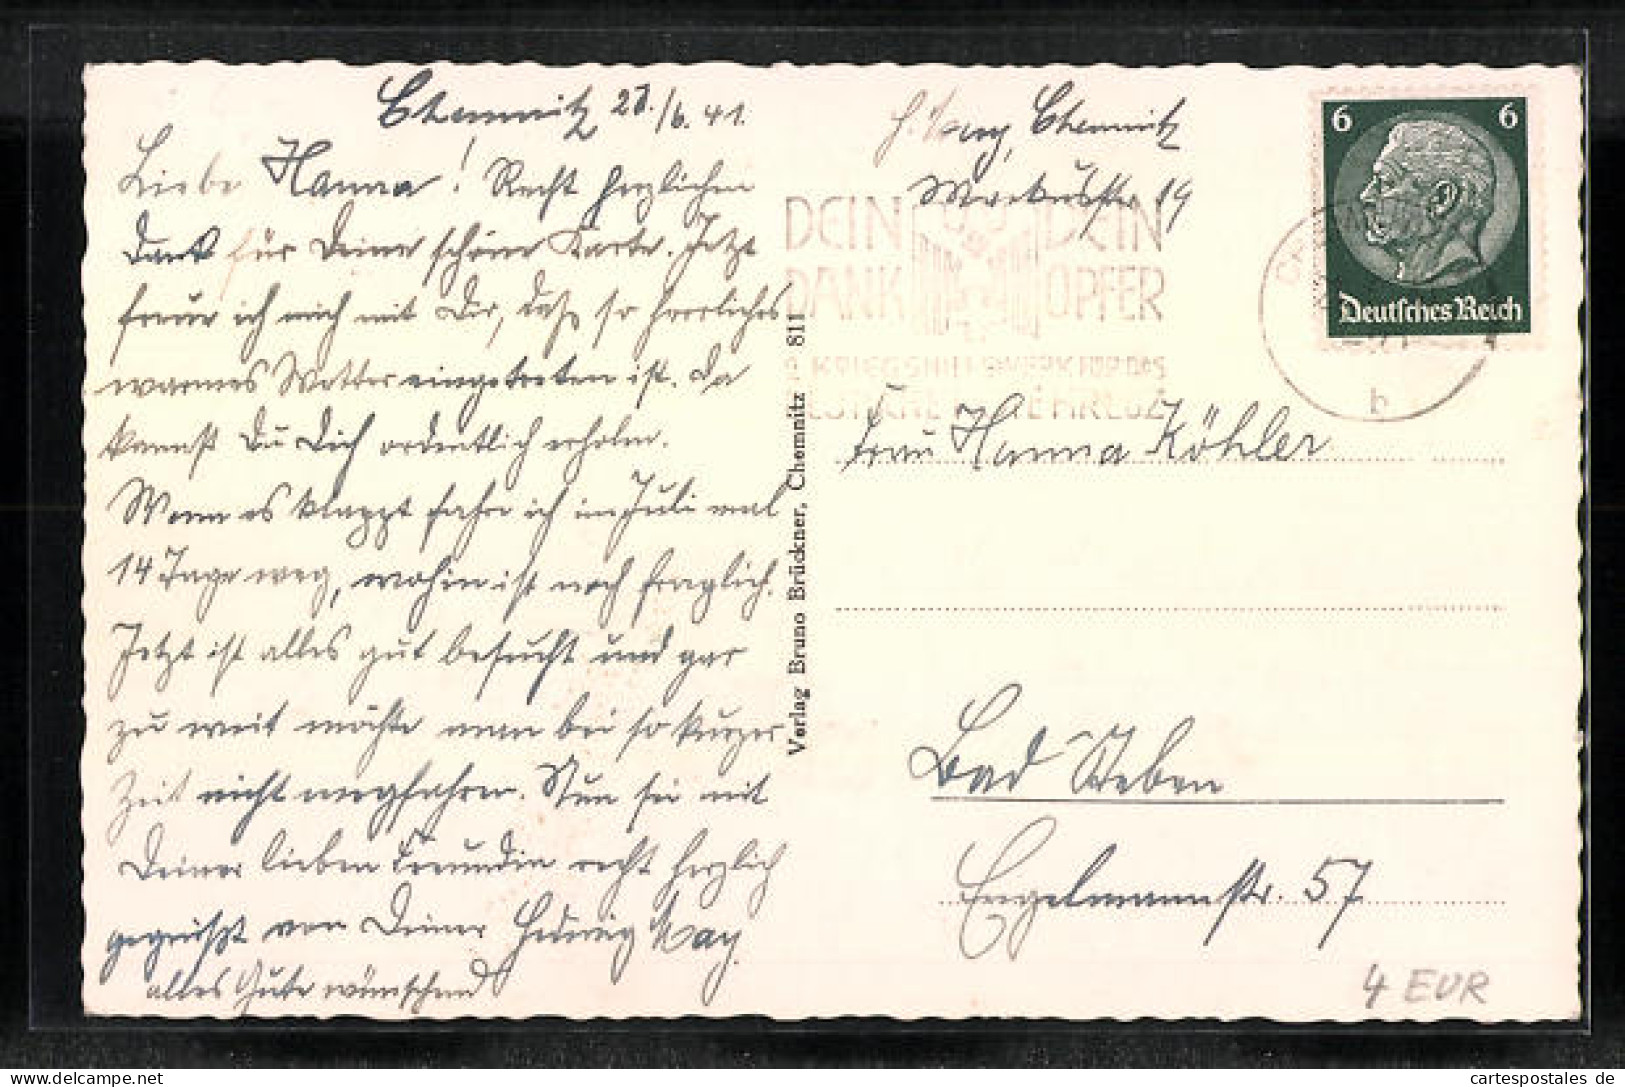 Chemnitz 23./6. 41.
Liebe Hanna! Recht herzlichen
Dank für Deine schöne Karte. Jetzt
freue ich mich mit Dir, daß so herrliches
warmes Wetter eingetreten ist. Da
kannst Du Dich ordentlich erholen.
Wenn es klappt fahre ich im Juli mal
14 Tage weg, wohin ist noch fraglich.
Jetzt ist alles gut besucht und gar
zu weit möchte man bei so kurzer
Zeit nicht wegfahren. Nun sei mit
Deiner lieben Freundin recht herzlich
gegrüßt von Deiner Hedwig May
alles Gute wünschend
Verlag Bruno Brückner, Chemnitz 811
H. May, Chemnitz
Markusstr 19
DEIN DEIN
DANK OPFER
KRIEGSHILFSWERK FÜR DAS
b
6 6
Deutsches Reich
Frau Hanna Köhler
Bad Steben
Engelmannstr. 57
4 EUR
the best online collectibles marketplace
cartespostales de